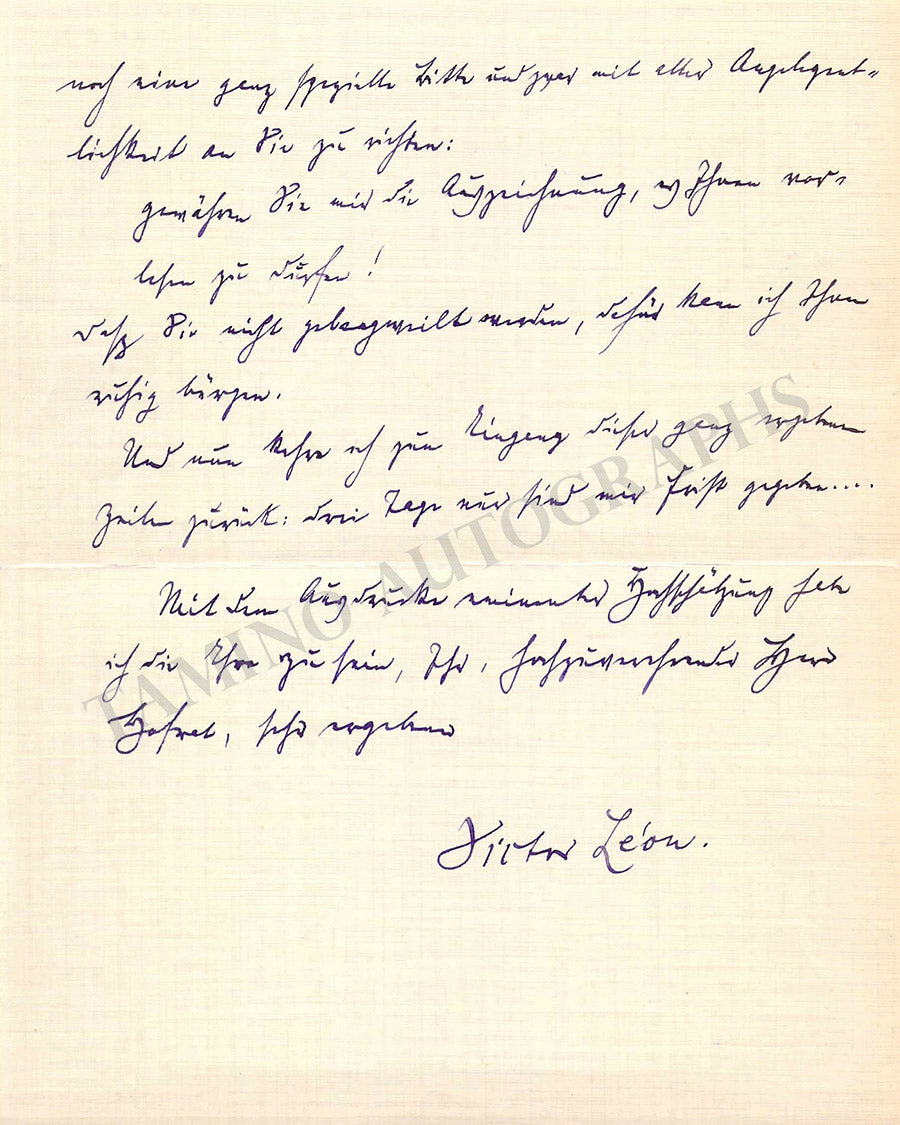 noch eine ganz spezielle Bitte und zwar mit aller Angelegent-
lichkeit an Sie zu richten:
gewähren Sie mir die Auszeichnung, es Ihnen vor-
lesen zu dürfen!
Dass Sie nicht gelangweilt werden, dafür kann ich Ihnen
ruhig bürgen.
Und nun kehre ich zum Eingang dieser ganz ergebenen
Zeilen zurück: drei Tage nur sind mir Frist gegeben....
Mit dem Ausdrucke eminenter Hochschätzung habe
ich die Ehre zu sein, Ihr, hochzuverehrender Herr
Hofrat, sehr ergebener
Victor Léon.
TAMINO AUTOGRAPHS